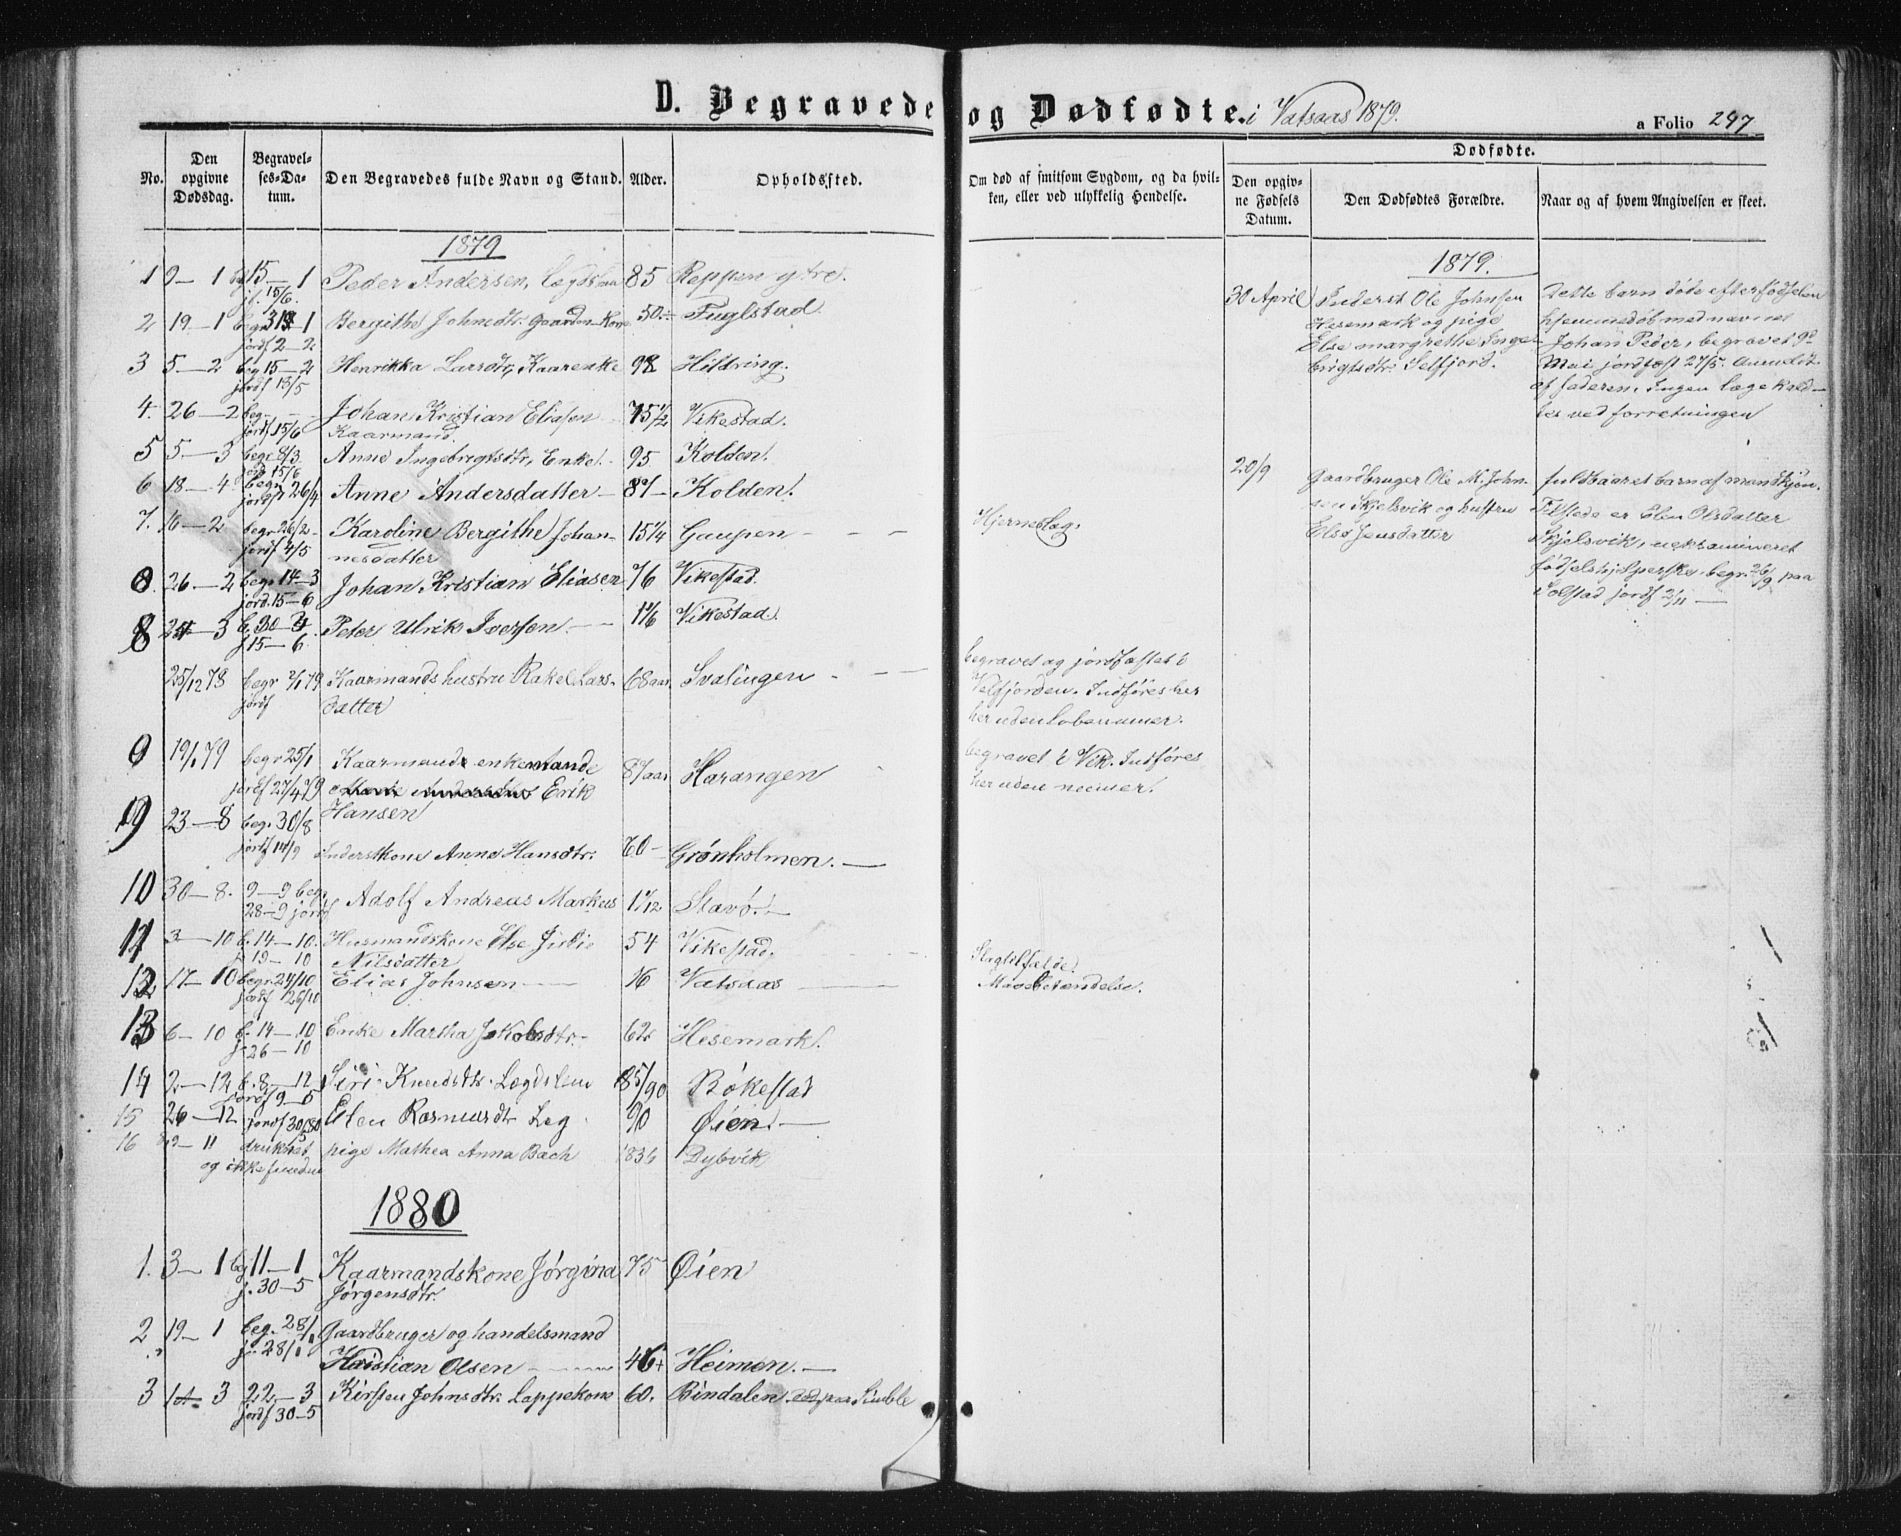 D. Begravede og Dødfødte. i Vatsaas 1879.
a Folio 247
No.
Den opgivne Dødsdag.
Begravelses-Datum.
Den Begravedes fulde Navn og Stand.
Alder.
Opholdssted.
Om død af smitsom Sygdom, og da hvilken, eller ved ulykkelig Hendelse.
Dødfødte.
Den opgivne Fødsels Datum.
Den Dødfødtes Forældre.
Naar og af hvem Angivelsen er skeet.
1879
1 9-1 bg 15-1 Peder Andersen, Lægdslem 85 Reppen ytre.
jf. 15/6.
2 19-1 begr 31-1 Bergithe Johnsdtr. Gaardm. Kone 50 Fuglstad
jordf 2-2
3 5-2 beg 15-2 Henrikka Larsdtr, Kaarenke 98 Hildring.
jordf 13/5
4. 26-2 beg. Johan Kristian Eliasen 75½ Vikestad.
jordf 15/6 Kaarmand.
5 5-3 begr 8/3 Anne Ingebrigtsdtr, Enke. 95 Kolden.
jord 15/6
6 18-4 begr. Anne Andersdatter 87 Kolden.
jordf 26/4
7. 16-2 begr 26/2 Karoline Bergithe Johan- 15¼ Gaupen Hjerneslag.
jordf 4/5 nesdatter
8 26-2 begr 14-3 Johan Kristian Eliasen 76 Vikestad.
jord. 15-6
8 24-3 b. 30-3 Peter Ulrik Iversen 1 1/6 Vikestad.
j 15-6
25/12 78 begr 2/1 79 Kaarmands hustru Rakel Lars- 68 aar Svalingen begravet og jordfæstet i
jordf datter Velfjorden. Indføres her
her uden løbenumer.
9 19/1 79 begr 25/1 Kaarmand enkemand 87 aar Harangen begravet i Vik. Indføres
jordf 27/4 79 Erik her uden numer.
Hansen
9 23-8 beg. 30/8
jordf 14/9 Inderstkone Anne Hansdtr. 60 Grønholmen.
10 30-8. 9-9 beg. Adolf Andreas Markus 1 1/12 Stavø.
28-9 jordf
11 3-10 b. 14-10. Husmandskone Else Sirie 54 Vikestad. Slagtilfælde.
j. 19-10 Nilsdatter
12 17-10 begr 24/10 Elias Johnsen 16 Vatsaas Mavebetændelse.
jordf 26/10
13 6-10 b. 14-10 Enke Martha Jakobsdtr. 62 Hesemark.
j 26-10
14 2-12 b. 8-12 Siri Knudsdtr. Lægdslem 85/90 Bøkestad
jordf 9-5
15 26-12 jordf 30/5 80 Elen Rasmusdtr Leg 90 Øien.
16 11 druknet pige Mathea Anna Bach 1836 Dybvik
og ikke funden
1880
1. 3-1 bg 11-1 Kaarmandskone Jørgina 75 Øien
j. 30-5 Jørgensdtr.
2 19-1 beg. 28/1 Gaardbruger og handelsmand
jo. 28/1 Kristian Olsen 46 Heimen.
3 14-3 22-3 Kirsten Johnsdtr. Lappekone 60. Bindalen død paa Simble
jordf 30-5
1879.
30 April Inderst Ole Johnsen
Hesemark og pige
Else margrethe Inge-
brigtsdtr. Selfjord.
Dette barn døde efter fødselen
hjemmedøbt med navnet
Johan Peder, begravet 9d
Mai jordfæst 27/5. Anmeldt
af faderen. Ingen læge kald-
tes ved forretningen
20/9 Gaardbruger Ole M. John-
sen Skjelsvik og hustru
Else Jensdatter
fuldbaaret barn af mandkjøn.
Tilstede er Elen Olsdatter
Skjelsvik, ueksamineret
fødselshjelperske. begr. 26/9 paa
Solstad jordf 2/11